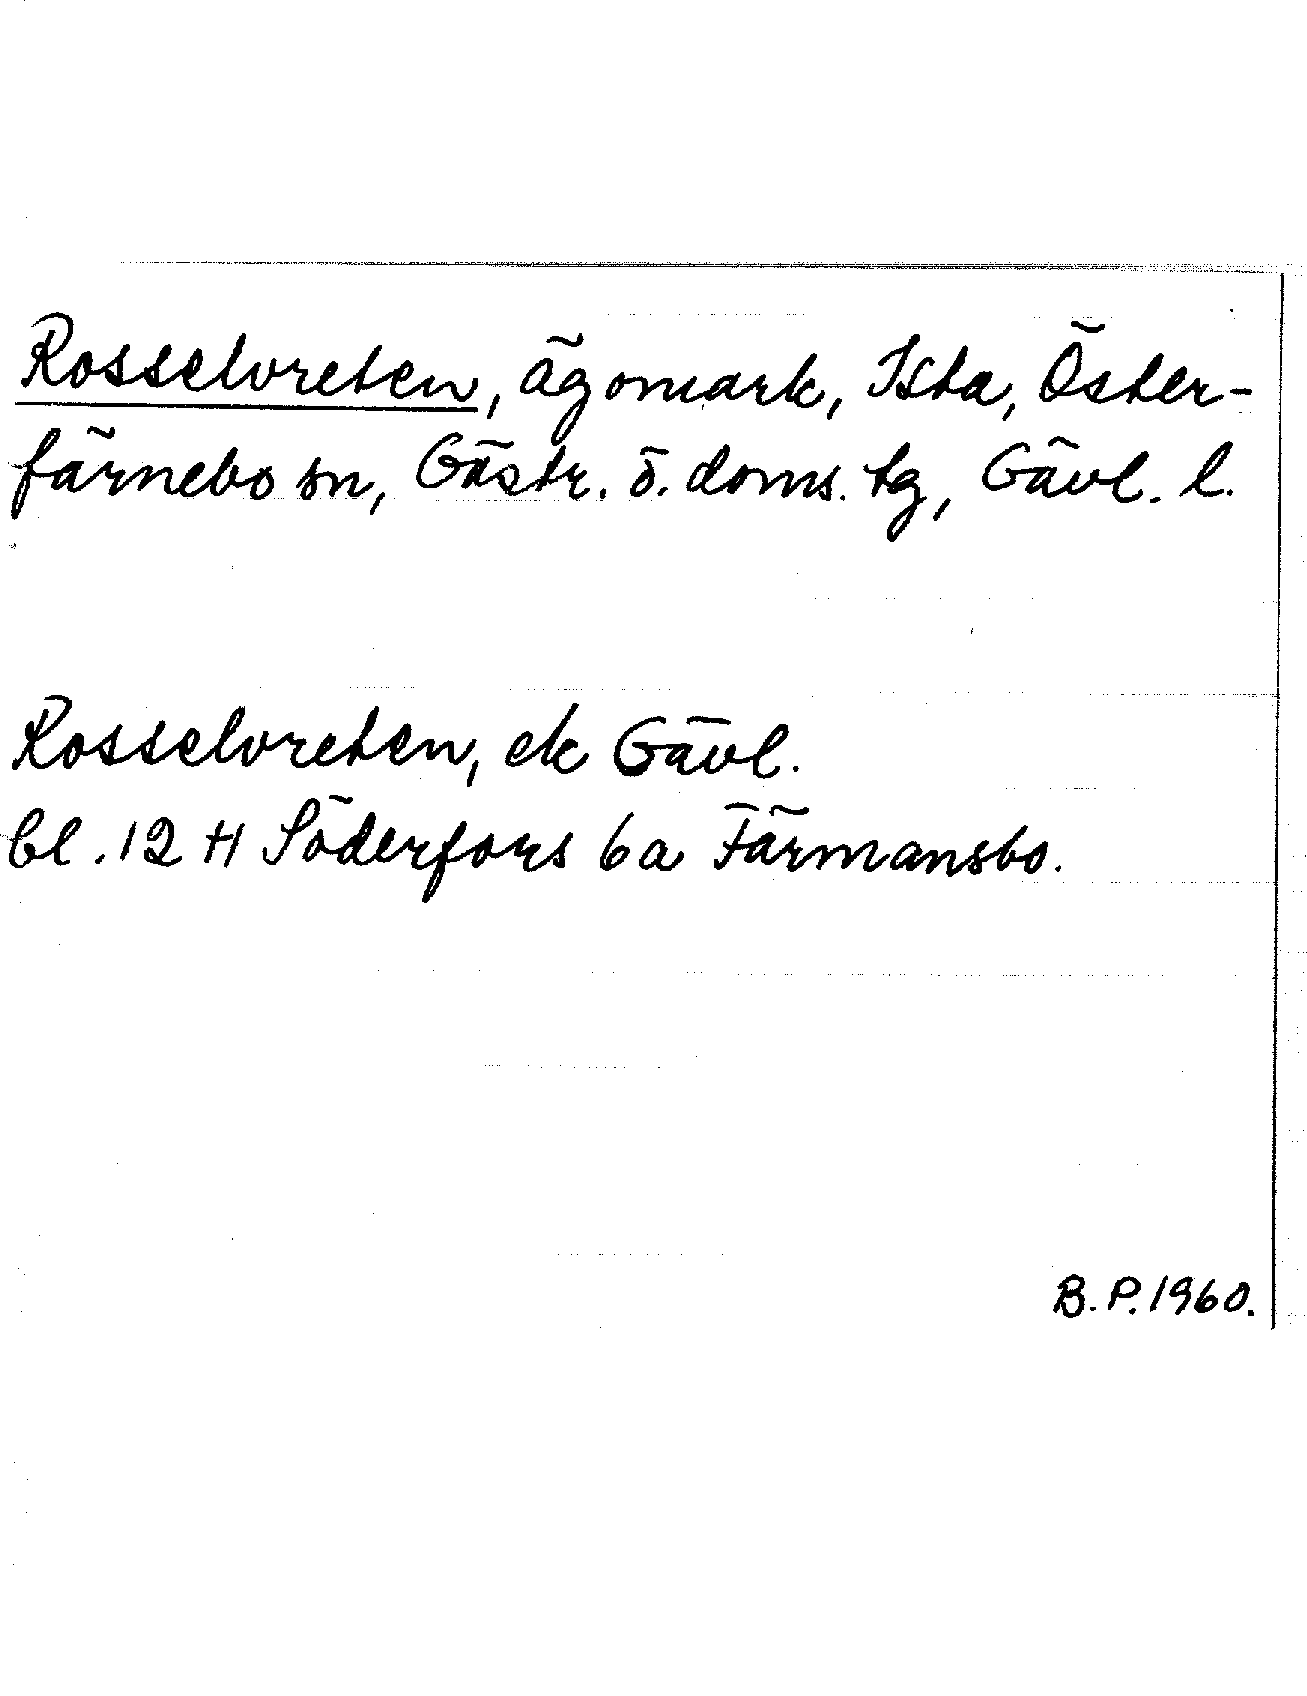 Rosselvreten, ägomark, Ista, Öster-
färnebo sn, Gästr. ö. doms. tg, Gävl. l.
Rosselvreten, ek Gävl.
bl. 12 H Söderfors 6a Färmansbo.
B. P. 1960.